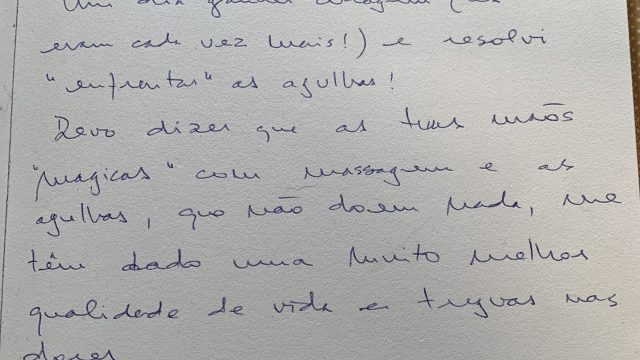 Um dia ganhei coragem (as
eram cada vez mais!) e resolvi
"enfrentar" as agulhas!
Devo dizer que as tuas mãos
"magicas" com massagem e as
agulhas, que não doem nada, me
têm dado uma muito melhor
qualidade de vida e treguas nas
dores